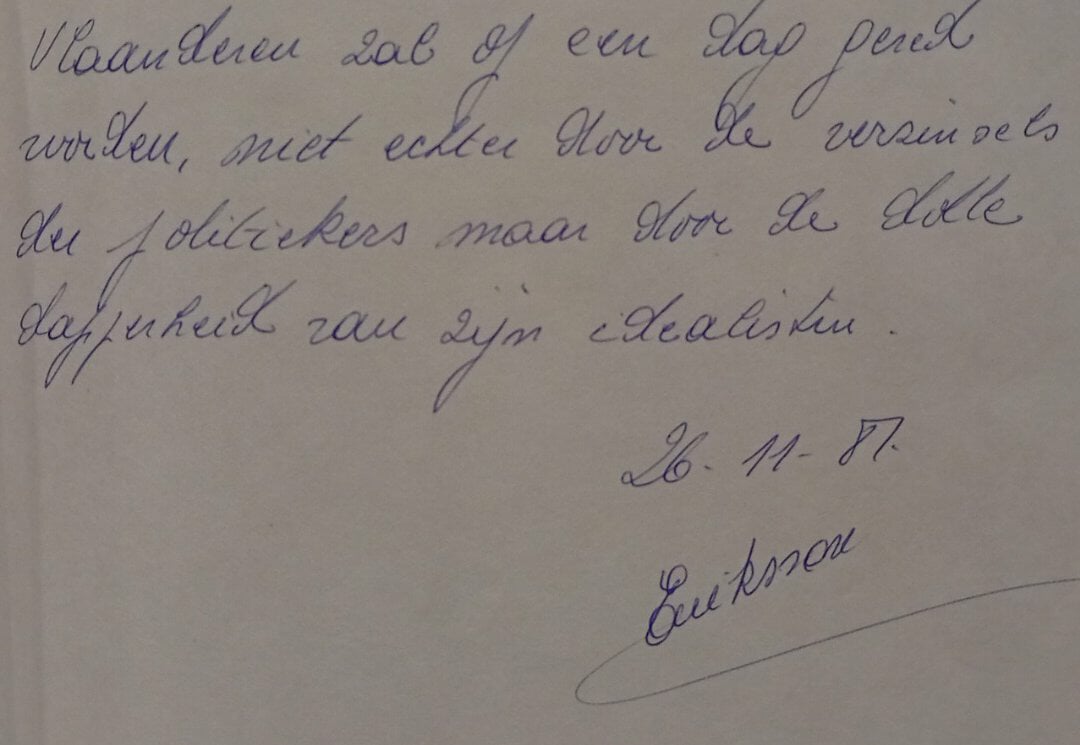 Vlaanderen zal op een dag gered
worden, niet echter door de verzinsels
der politiekers maar door de dolle
dapperheid van zijn idealisten.
26-11-87.
Eriksson